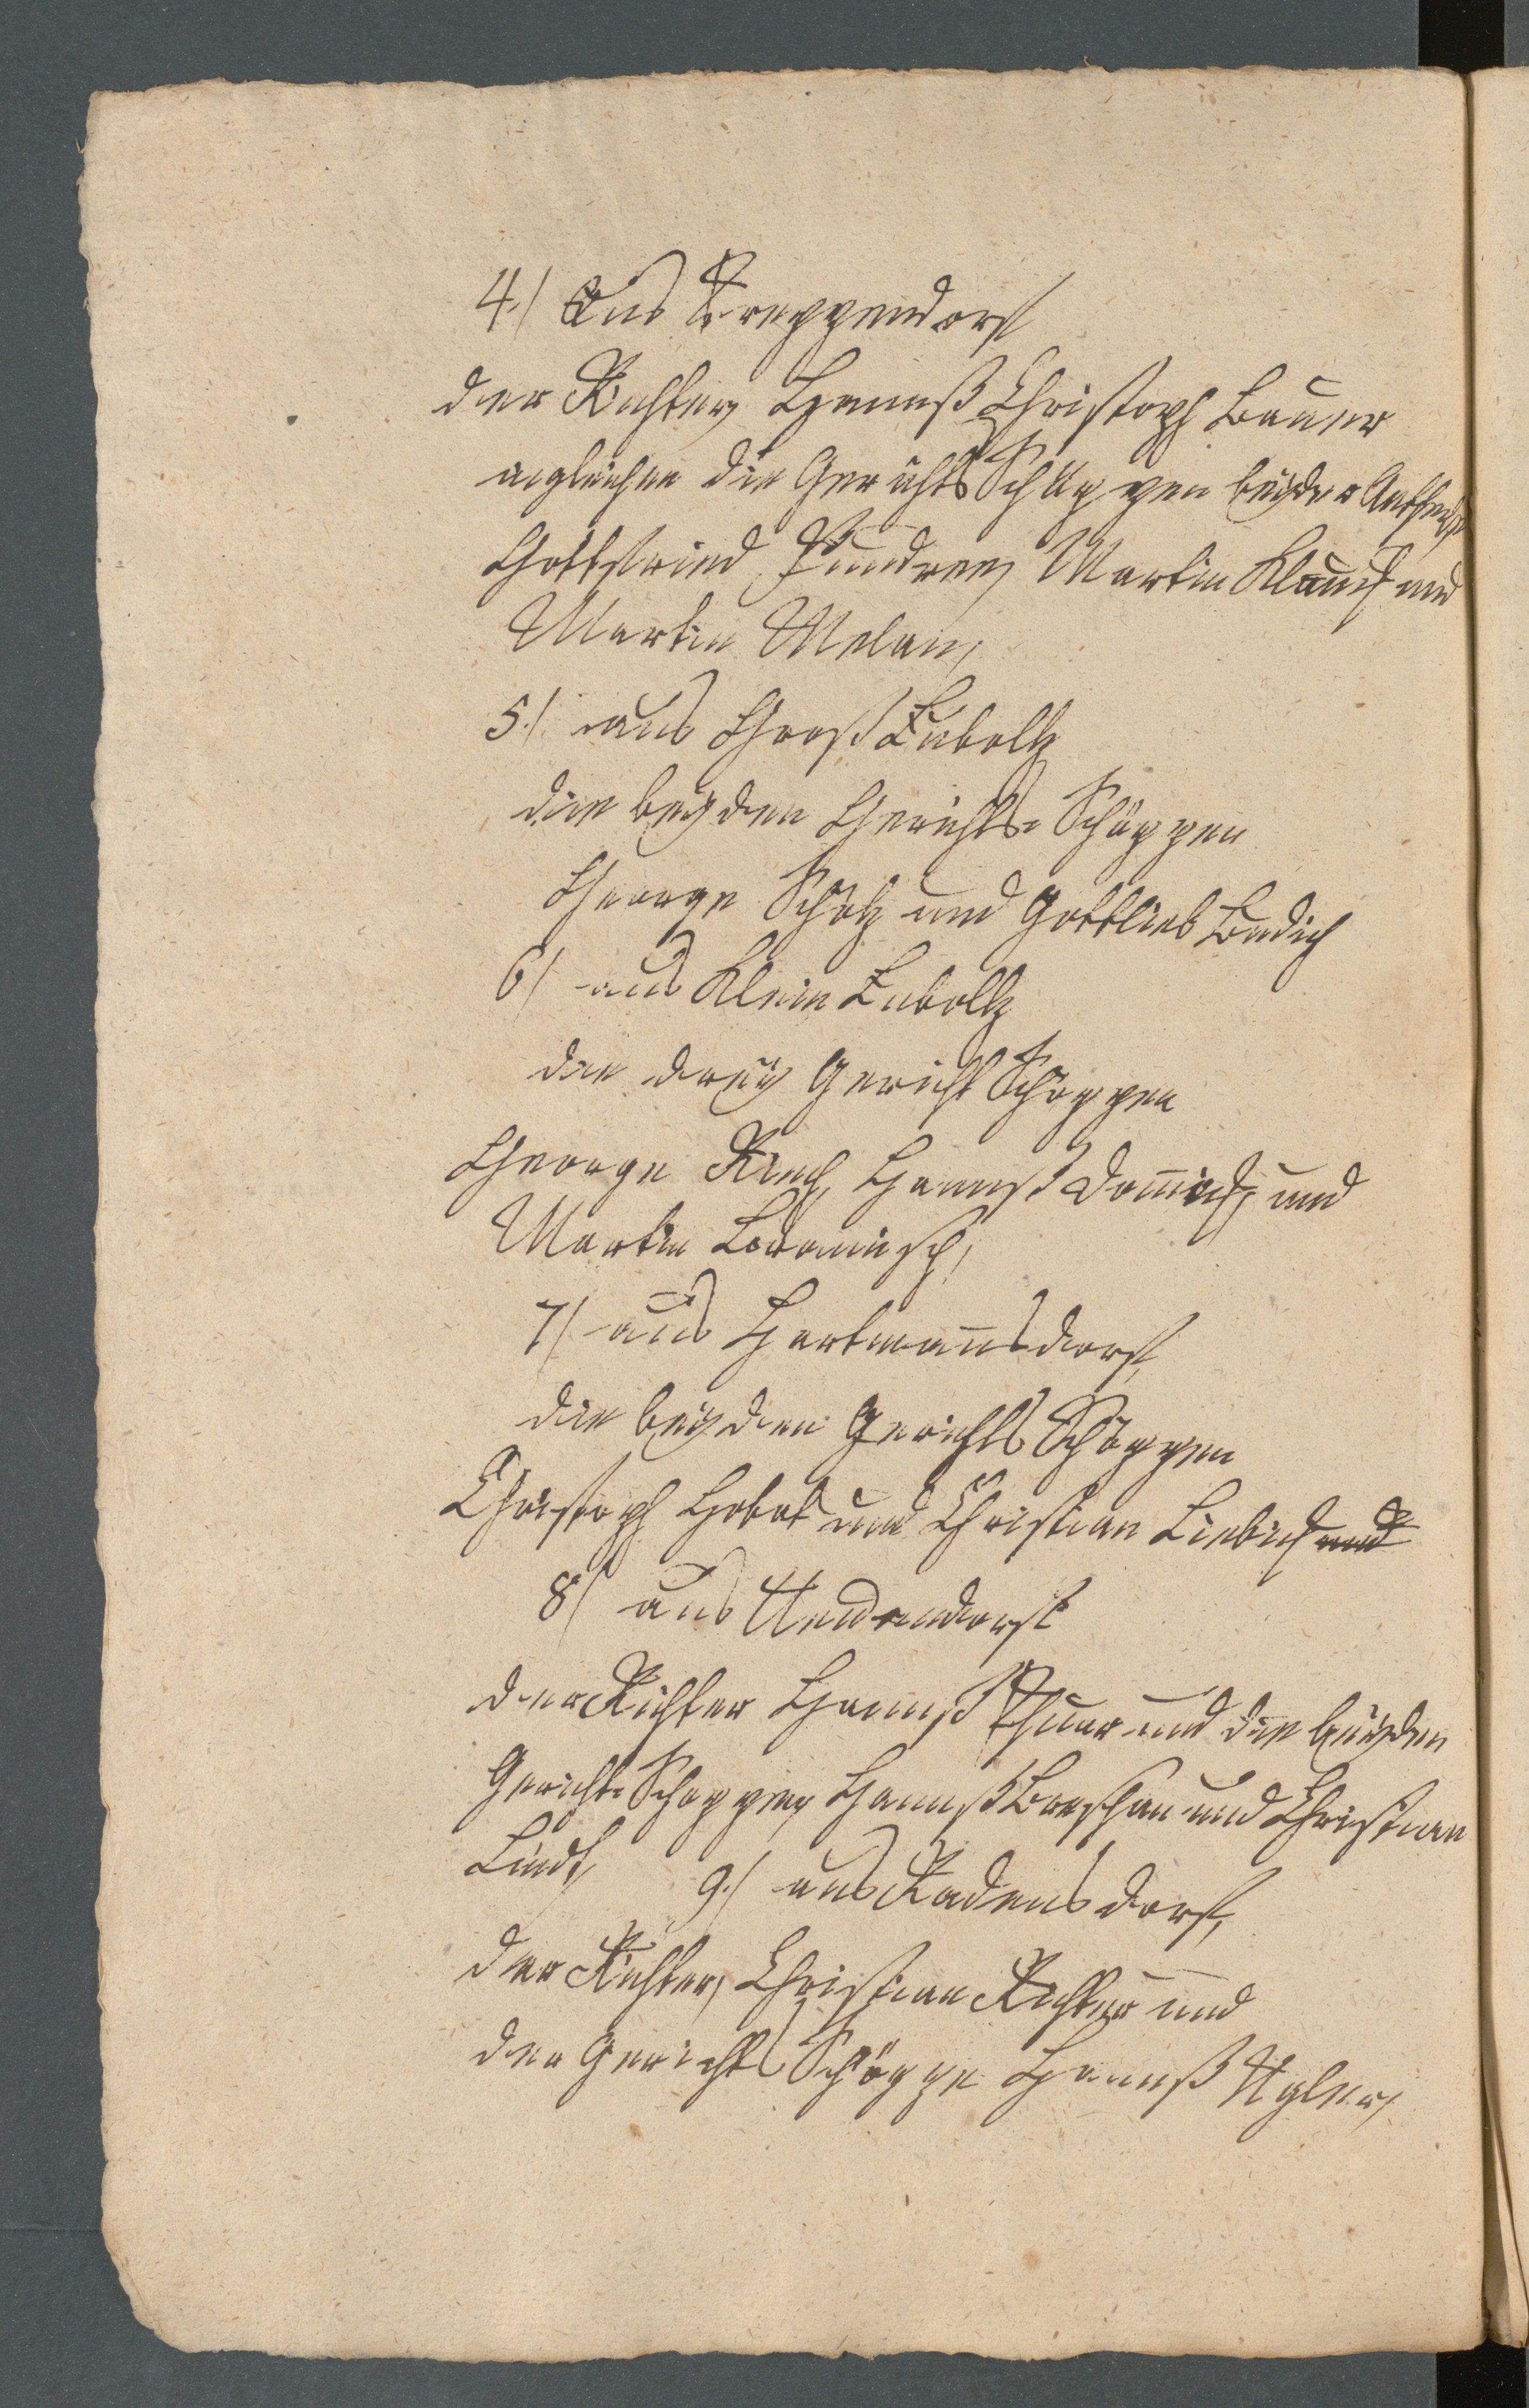 4./ Aus Treppendorf
der Richter Hannß Christoph Bauer
ingleichen die Gerichts Schöppen beyder Antheile
Gottfried Martin Klauch und
Martin Melan,
5./ aus Groß Lubolz
die beyden Gerichts-Schöppen
George Scholz und Gottlieb Badich
6./ aus Klein Lubolz
die drey Gericht Schöppen
George Hannß Domick, und
Martin
7./ aus Hartmannsdorf,
die beyden Gerichts Schöppen
Christoph und Christian Liebich und
8./ aus Neuendorf
der Richter Hannß und die beyden
Gerichts Schöppen Hannß und Christian
9./ aus Radensdorf,
der Richter, Christian Richter und
der Gerichts Schöppe Hannß